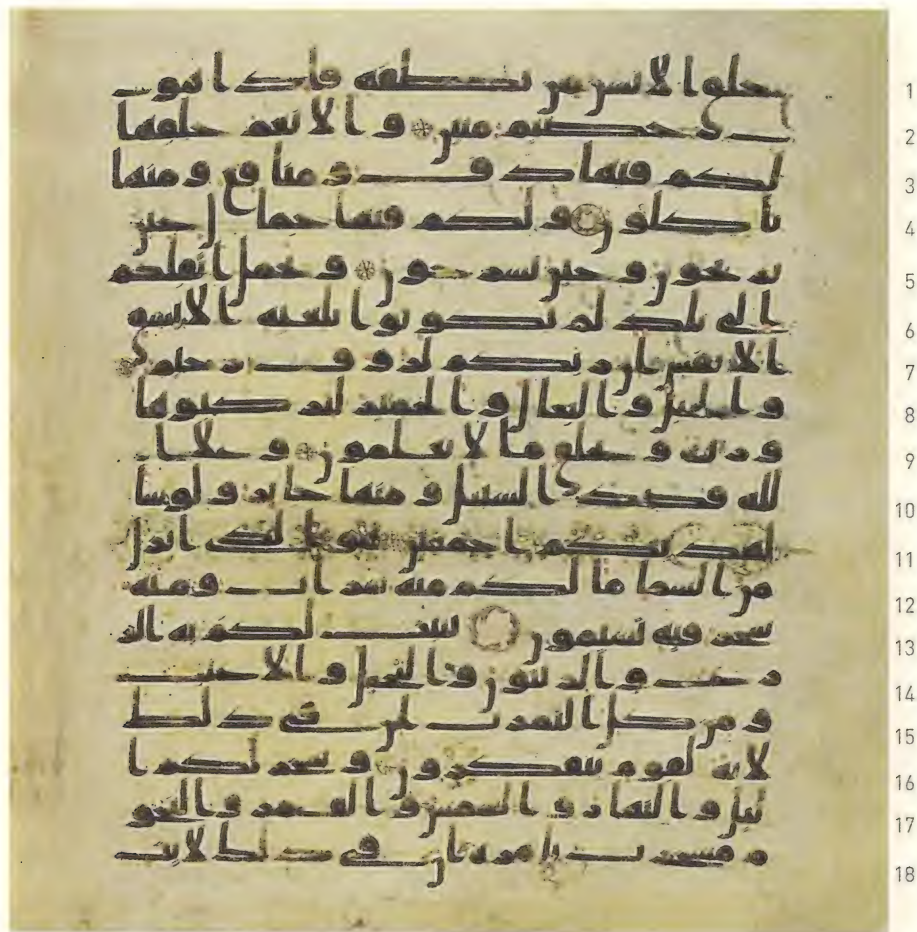 1 خلق الانسن من نطفة فاذا هو
2 خصيم مبين والانعم خلقها
3 لكم فيها دف ومنافع ومنها
4 تاكلون ولكم فيها جمال حين
5 تريحون وحين تسرحون وتحمل اثقلكم
6 الى بلد لم تكونوا بلغيه الا بشق
7 الانفس ان ربكم لروف رحيم
8 والخيل والبغال والحمير لتركبوها
9 وزينة ويخلق ما لا تعلمون وعلا
10 لله قصد السبيل ومنها جاير ولو شا
11 لهديكم اجمعين هو الذي انزل
12 من السما ما لكم منه شراب ومنه
13 شجر فيه تسيمون ينبت لكم به الز
14 رع والزيتون والنخيل والاعنب
15 ومن كل الثمرت ان في ذلك
16 لاية لقوم يتفكرون وسخر لكم ا
17 ليل والنهار والشمس والقمر والنجو
18 م مسخرت بامره ان في ذلك لايت